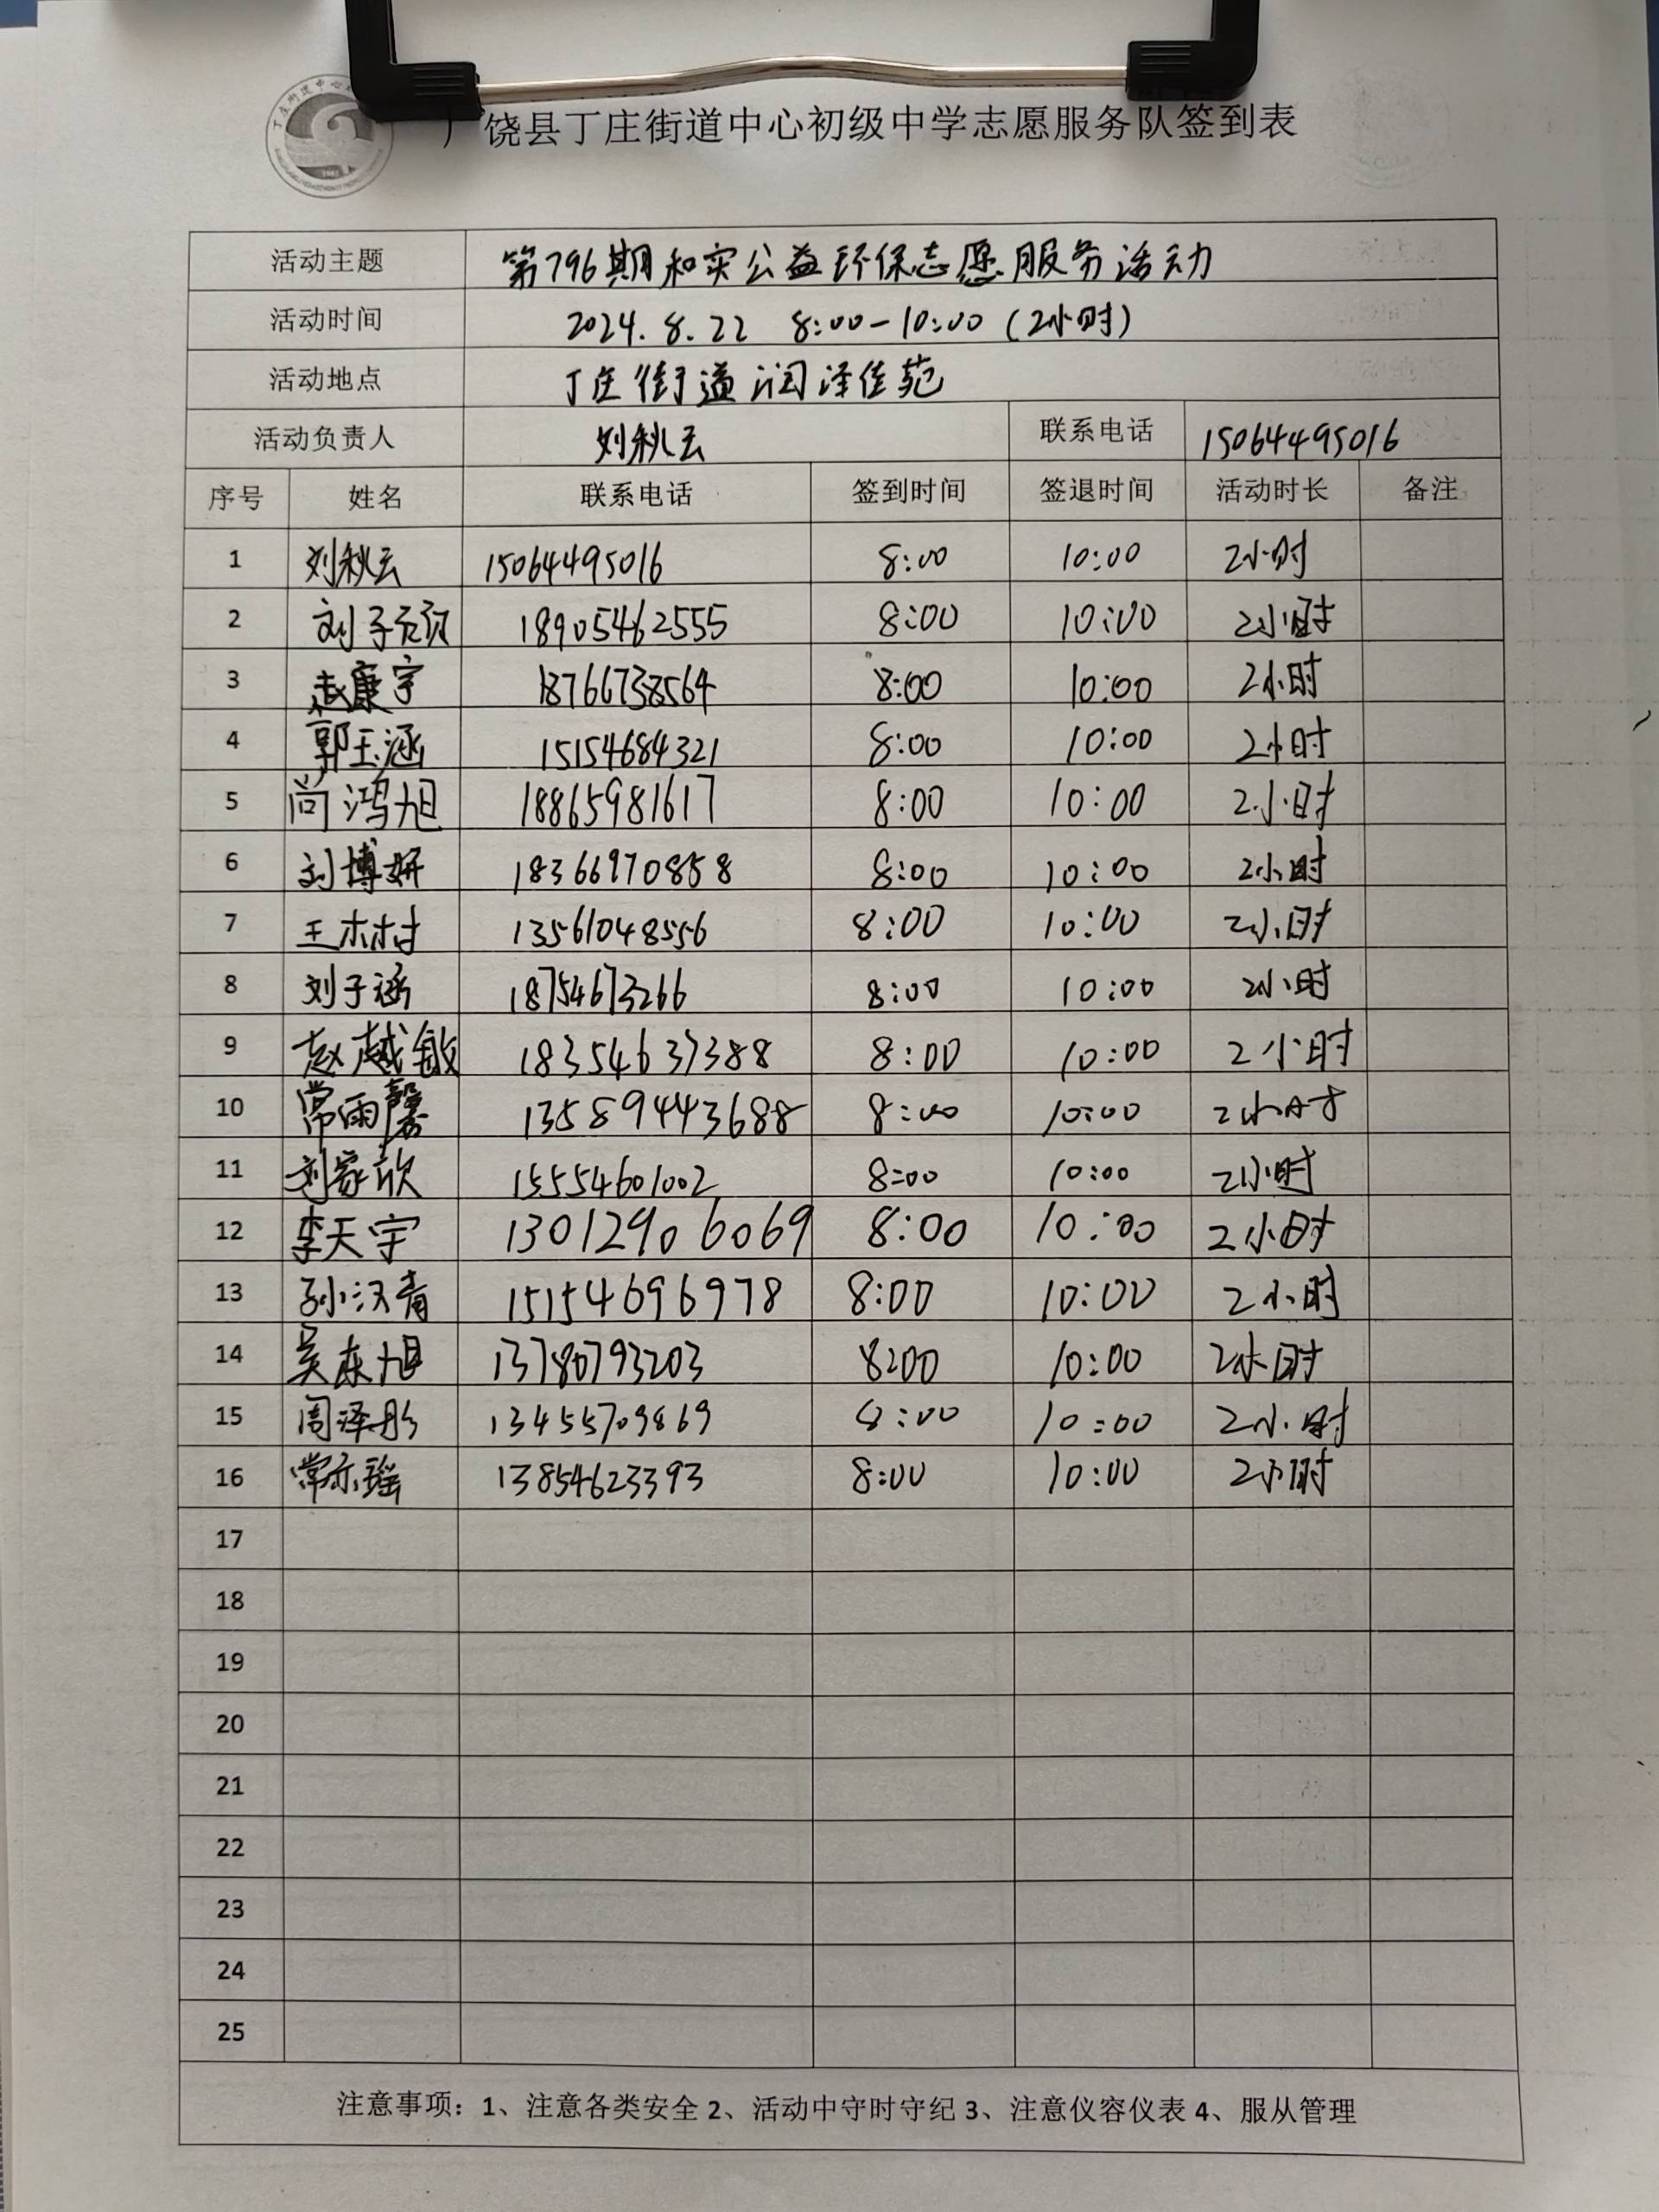 广饶县丁庄街道中心初级中学志愿服务队签到表
活动主题 第796期和实公益环保志愿服务活动
活动时间 2024.8.22 8:00-10:00(2小时)
活动地点 丁庄街道润泽佳苑
活动负责人 刘秋云 联系电话 15064495016
序号 姓名 联系电话 签到时间 签退时间 活动时长 备注
1 刘秋云 15064495016 8:00 10:00 2小时
2 刘子 18905462555 8:00 10:00 2小时
3 赵康宇 18766738564 8:00 10:00 2小时
4 郭玉涵 15154684321 8:00 10:00 2小时
5 尚鸿旭 18865981617 8:00 10:00 2小时
6 刘博妍 18366970858 8:00 10:00 2小时
7 王木村 13561048556 8:00 10:00 2小时
8 刘子涵 18754673266 8:00 10:00 2小时
9 赵越敏 18354637388 8:00 10:00 2小时
10 常雨馨 13589443688 8:00 10:00 2小时
11 刘家欣 15554601002 8:00 10:00 2小时
12 李天宇 13012906069 8:00 10:00 2小时
13 孙汉青 15154696978 8:00 10:00 2小时
14 吴东旭 13780793203 8:00 10:00 2小时
15 周泽彤 13455709869 8:00 10:00 2小时
16 常亦瑶 13854623393 8:00 10:00 2小时
17
18
19
20
21
22
23
24
25
注意事项：1、注意各类安全 2、活动中守时守纪 3、注意仪容仪表 4、服从管理